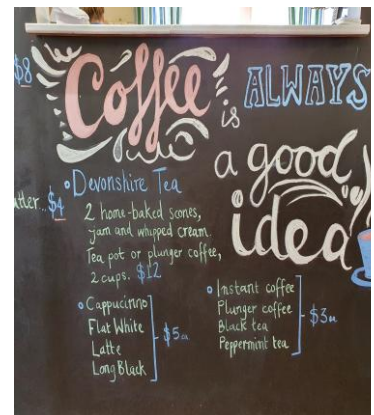 $8
Coffee is ALWAYS
a good
idea
$4
Devonshire Tea
2 home-baked scones,
jam and whipped cream.
Tea pot or plunger coffee,
2 cups. $12
Cappucinno
Flat White
Latte
Long Black
$5ea
Instant coffee
Plunger coffee
Black tea
Peppermint tea
$3ea